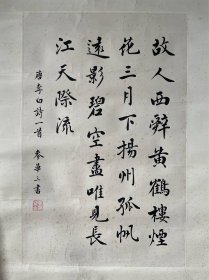 故人西辭黃鶴樓煙
花三月下揚州孤帆
遠影碧空盡唯見長
江天際流
唐李白詩一首 秦華之書